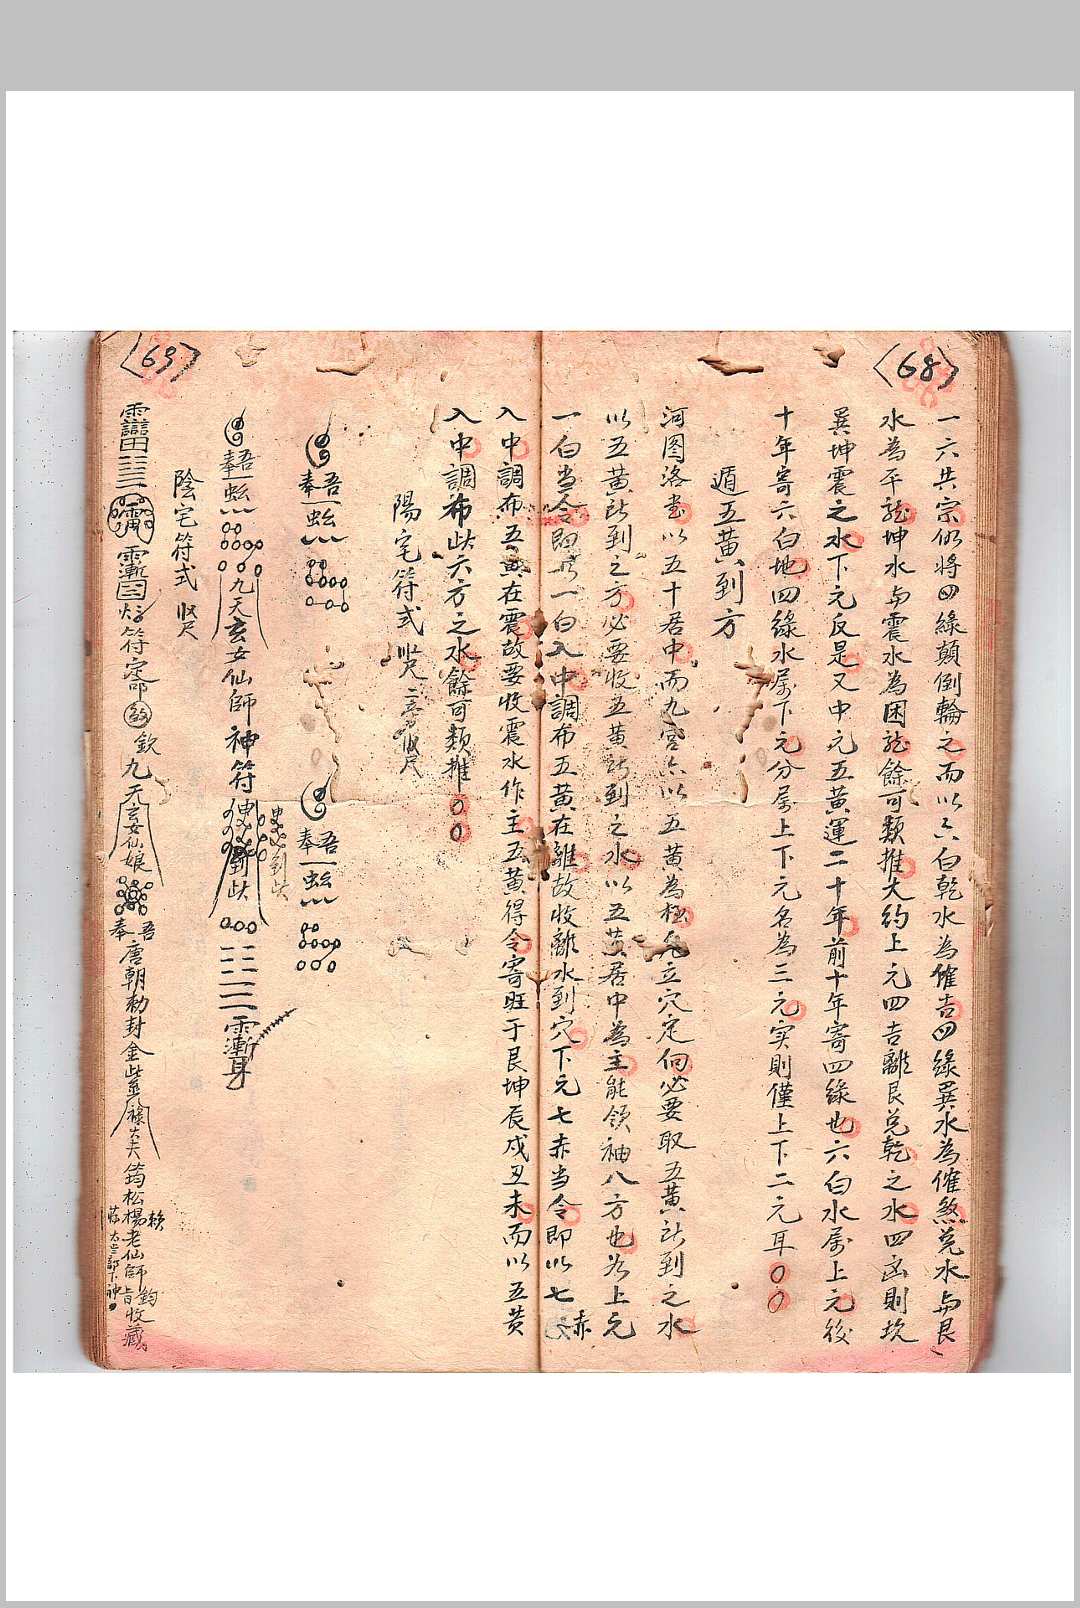 〈68〉
一六共宗仍將四綠顛倒輪之而以六白乾水為催吉四綠巽水為催煞兌水与艮
水為平龍坤水与震水為困龍餘可類推大約上元四吉離艮兌乾之水四凶則坎
巽坤震之水下元反是又中元五黃運二十年前十年寄四綠也六白水屬上元後
十年寄六白地四綠水屬下元分屬上下元名為三元实則僅上下二元耳
遁五黃到方
河图洛書以五十居中而九宮亦以五黃為極凡立穴定向必要取五黃訪到之水
以五黃訪到之方必要收五黃訪到之水以五黃居中為主能領袖八方也如上元
一白当令即以一白入中調布五黃在離故收離水到穴下元七赤当令即以七赤
〈69〉
入中調布五黃在震故要收震水作主五黃得令寄旺于艮坤辰戌丑未而以五黃
入中調布此六方之水餘可類推
陽宅符式
奉吾
奉吾
奉吾
九天玄女仙師神符
到此
陰宅符式
符
欽九天玄女仙娘
奉吾唐朝勅封金紫
大夫筠松楊老仙師
賴
收藏